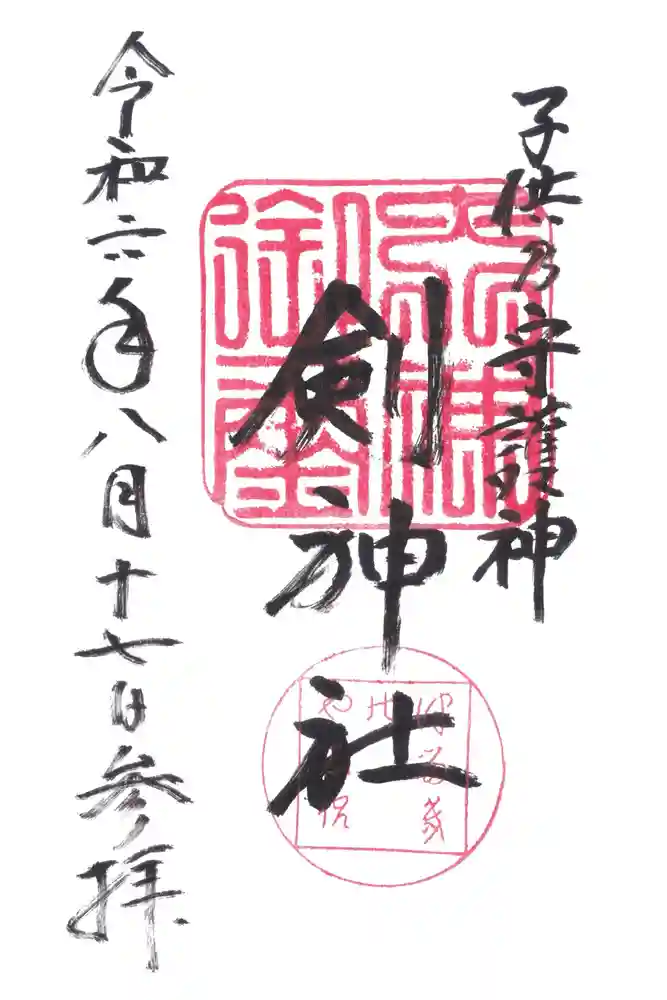 子供乃守護神
剣神社
令和六年八月十七日参拝